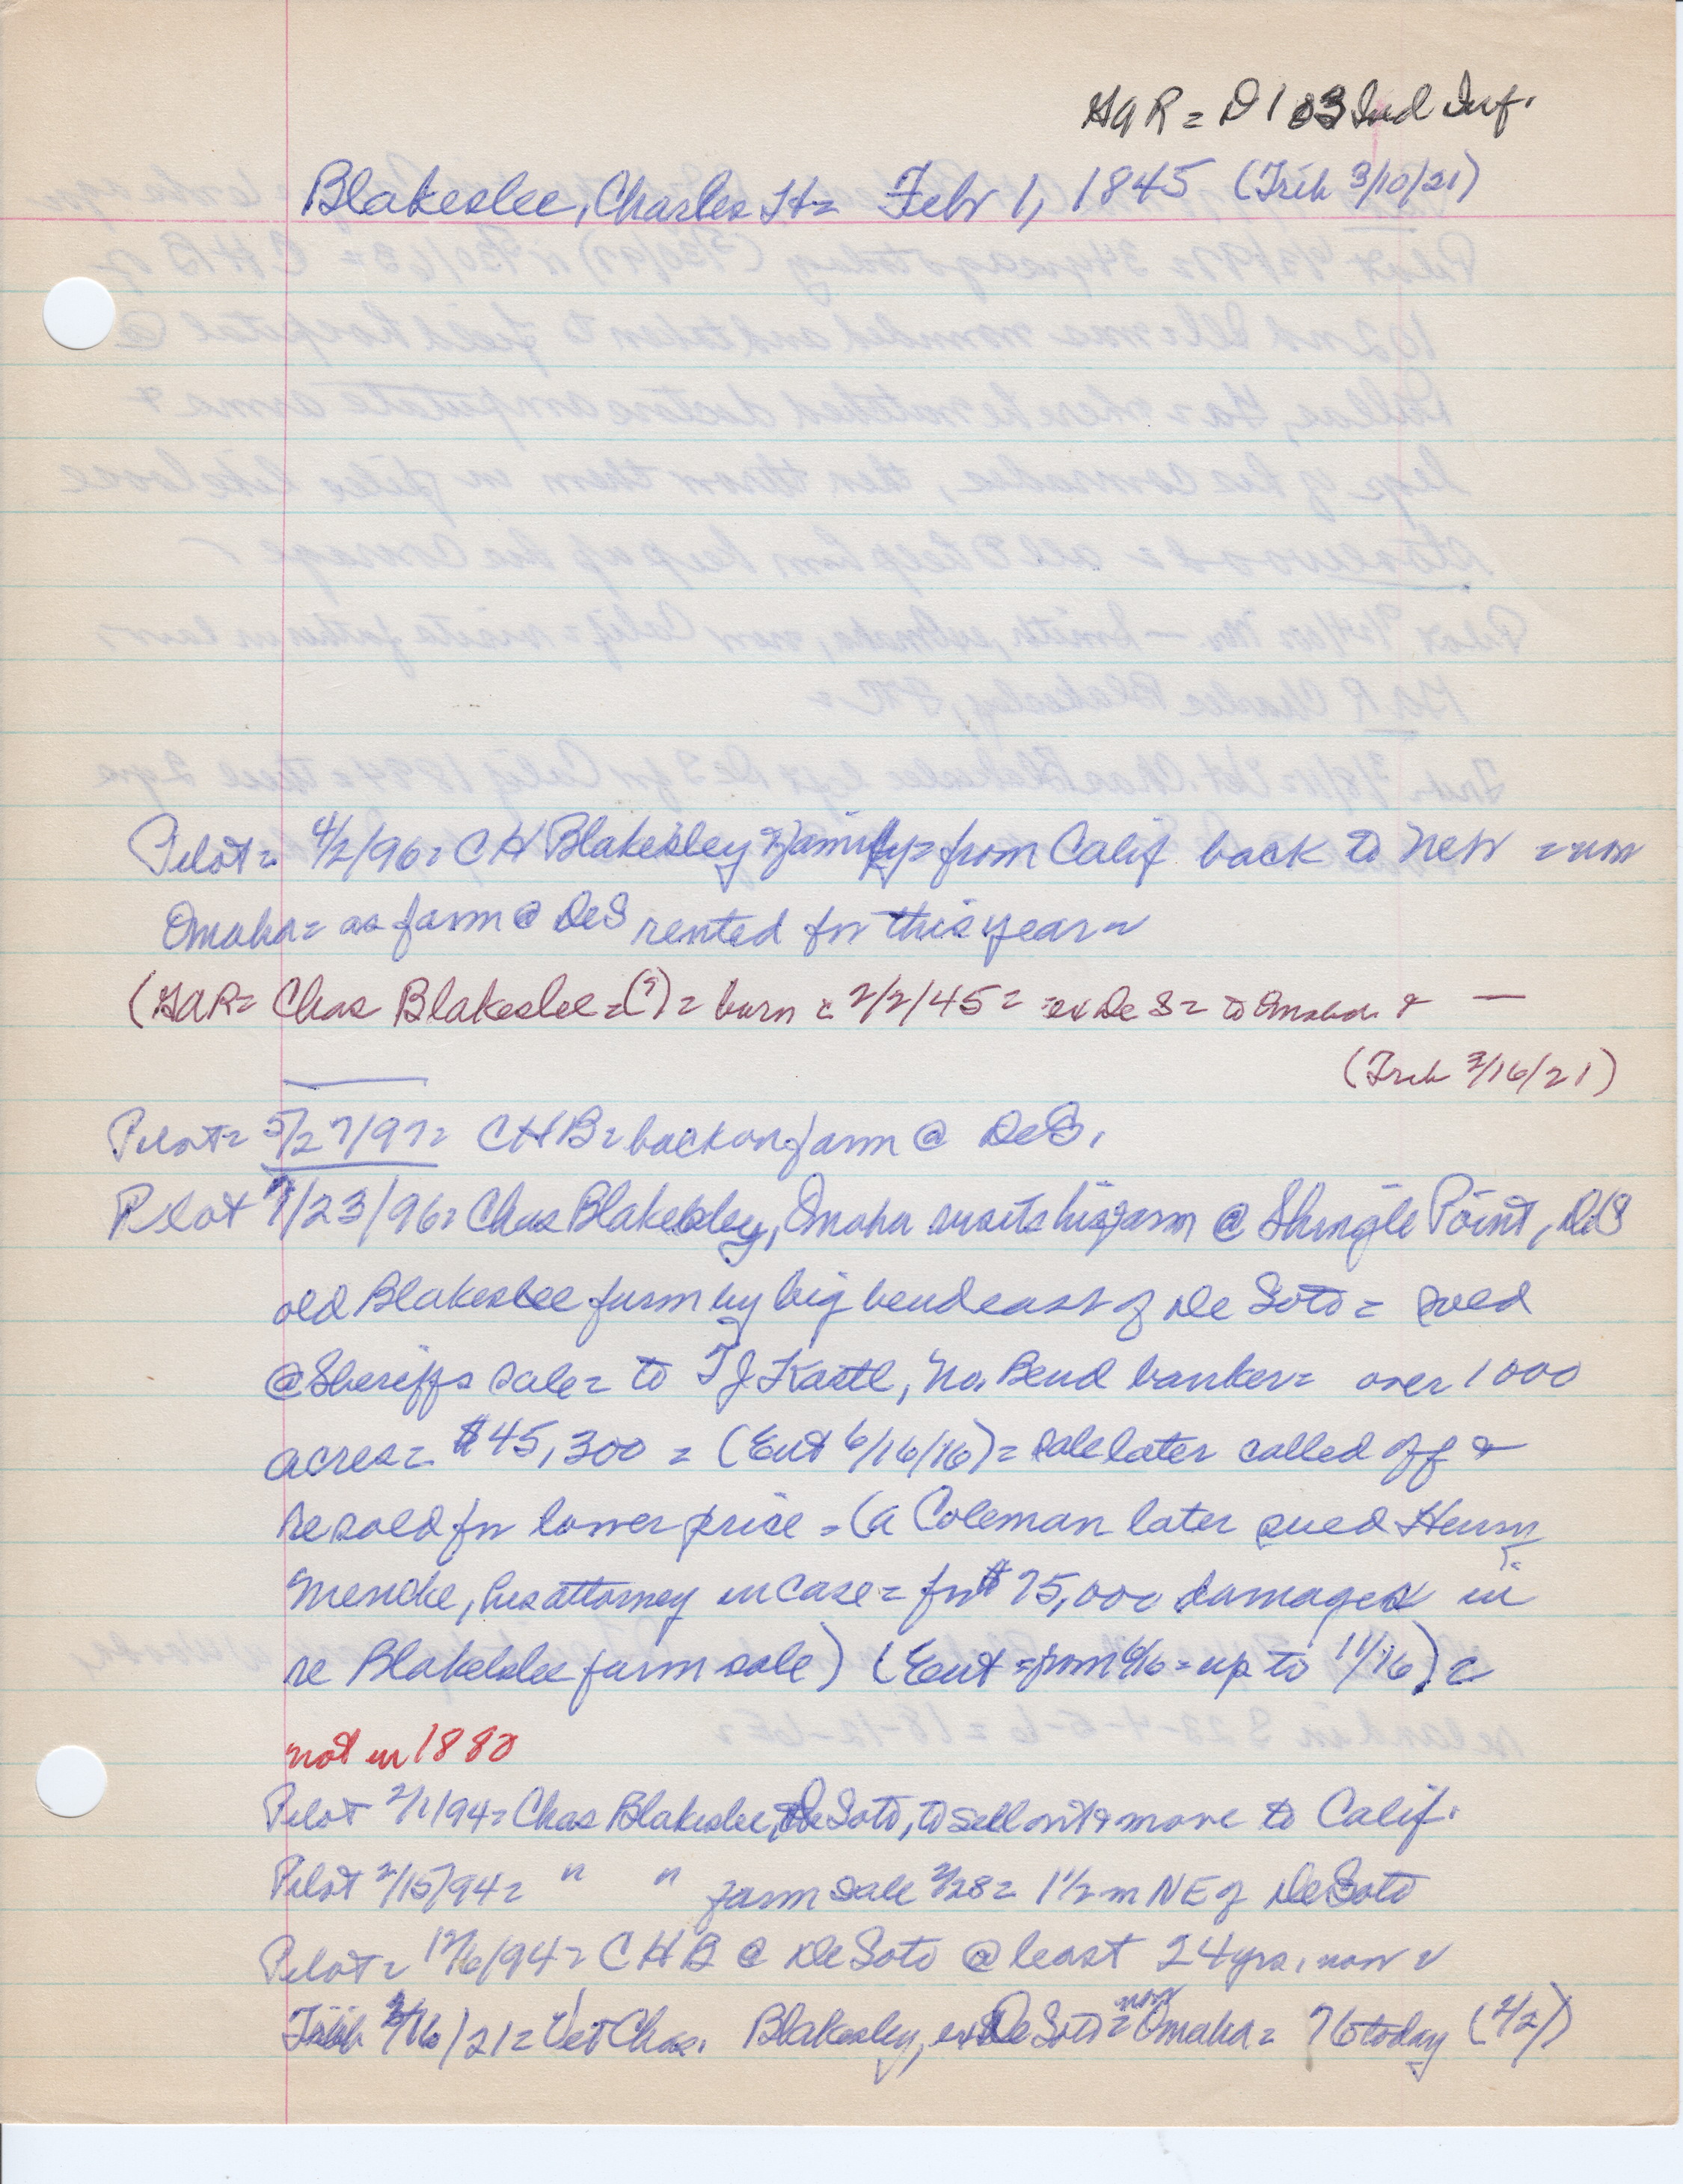 GAR = D 183 Ind Inf.
Blakeslee, Charles H = Febr 1, 1845 (Trib 3/10/21)
Pilot = 4/2/96 = CH Blakesley & family = from Calif back to Neb = now
Omaha = as farm @ DeS rented for this year =
(GAR = Chas Blakeslee = (?) = born = 2/2/45 = = ex DeS = to Omaha & —
(Trib 3/16/21)
Pilot = 5/27/97 = CHB = back on farm @ DeS.
Pilot 7/23/96 = Chas Blakesley, Omaha visits his farm @ Shingle Point, DeS
old Blakeslee farm by big bend east of De Soto = sold
@ Sheriffs sale = to T J Kastl, No. Bend banker = over 1000
acres = $45,300 = (Ent 6/16/16) = sale later called off &
resold for lower price = (a Coleman later sued Henry
Mencke, his attorney in case = for $75,000 damages in
re Blakeslee farm sale) (Ent = from 6/16 = up to 11/16) =
not in 1880
Pilot 2/1/94 = Chas Blakeslee, DeSoto, to sell out & move to Calif.
Pilot 2/15/94 = " " farm sale 2/28 = 1 1/2 m NE of DeSoto
Pilot = 12/6/94 = C H B @ DeSoto @ least 24 yrs. now =
Trib 3/16/21 = Vet Chas. Blakesley, ex DeSoto = now Omaha = 76 today (2/2/)